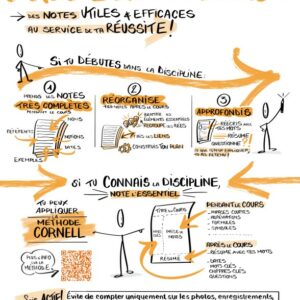 DES NOTES UTILES & EFFICACES
AU SERVICE DE TA RÉUSSITE!
SI TU DÉBUTES DANS LA DISCIPLINE:
1
PRENDS DES NOTES
TRÈS COMPLÈTES
PENDANT LE COURS
NOTIONS
RÉFÉRENCES
DATES
EXEMPLES
2
RÉORGANISE
TES NOTES APRÈS LE COURS
IDENTIFIE LES
ÉLÉMENTS ESSENTIELS
REGROUPE LES IDÉES
FAIS DES LIENS
CONSTRUIS TON PLAN
3
APPROFONDIS
RÉÉCRIS AVEC
TES MOTS
RÉSUMÉ
QUESTIONNE
SI TU CONNAIS LA DISCIPLINE,
NOTE L'ESSENTIEL
TU PEUX
APPLIQUER LA
MÉTHODE
CORNELL
PLUS D'INFO
SUR LA
MÉTHODE
TITRE DU COURS
RÉSUMÉ
PENDANT LE COURS
APRÈS LE COURS
RÉSUME AVEC TES MOTS
DATES
MOTS CLÉS
CHIFFRES CLÉS
QUESTIONS
SOIS ACTIF! Évite de compter uniquement sur les photos, enregistrements,